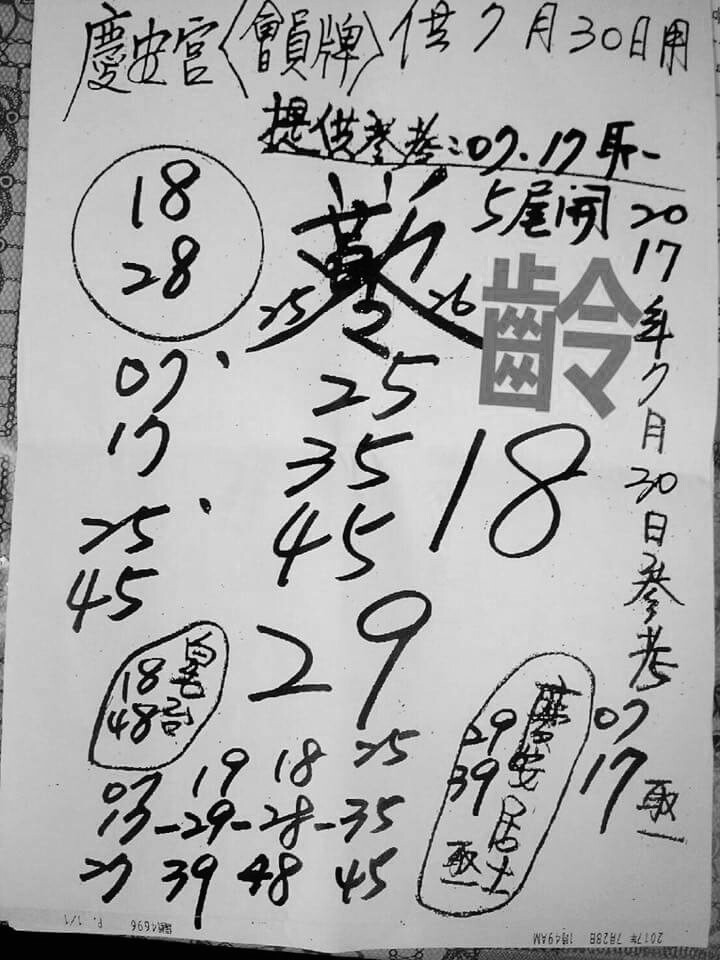 慶安宮〈會員牌〉供7月30日用
提供參考：07.17取一
5尾開
2017年7月30日參考
07
17取一
18
28
25 26
齡
07、
17
25、
45
25
35
45
18
29
18
48
慶安居士
29
39
取一
07 19 18 25
17-29-28-35
27 39 48 45
2017年 7月28日 1時49AM
4696 P. 1/1